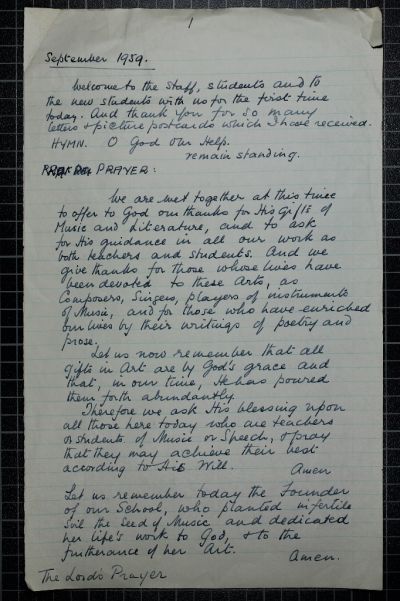 1
September 1959.
Welcome to the staff, students and to
the new students with us for the first time
today. And thank you for so many
letters & picture postcards which I have received.
HYMN. O God our Help.
remain standing.
PRAYER:
We are met together at this time
to offer to God our thanks for His Gifts of
Music and Literature, and to ask
for His guidance in all our work as
both teachers and students. And we
give thanks for those whose lives have
been devoted to these Arts, as
Composers, Singers, players of instruments
of Music, and for those who have enriched
our lives by their writings of poetry and
prose.
Let us now remember that all
gifts in Art are by God's grace and
that, in our time, He has poured
them forth abundantly.
Therefore we ask His blessing upon
all those here today who are teachers
or students of Music or Speech, & pray
that they may achieve their best
according to His Will.
Amen
Let us remember today the Founder
of our School, who planted in fertile
Soil the Seed of Music and dedicated
her life's work to God, & to the
furtherance of her Art.
Amen.
The Lord's Prayer